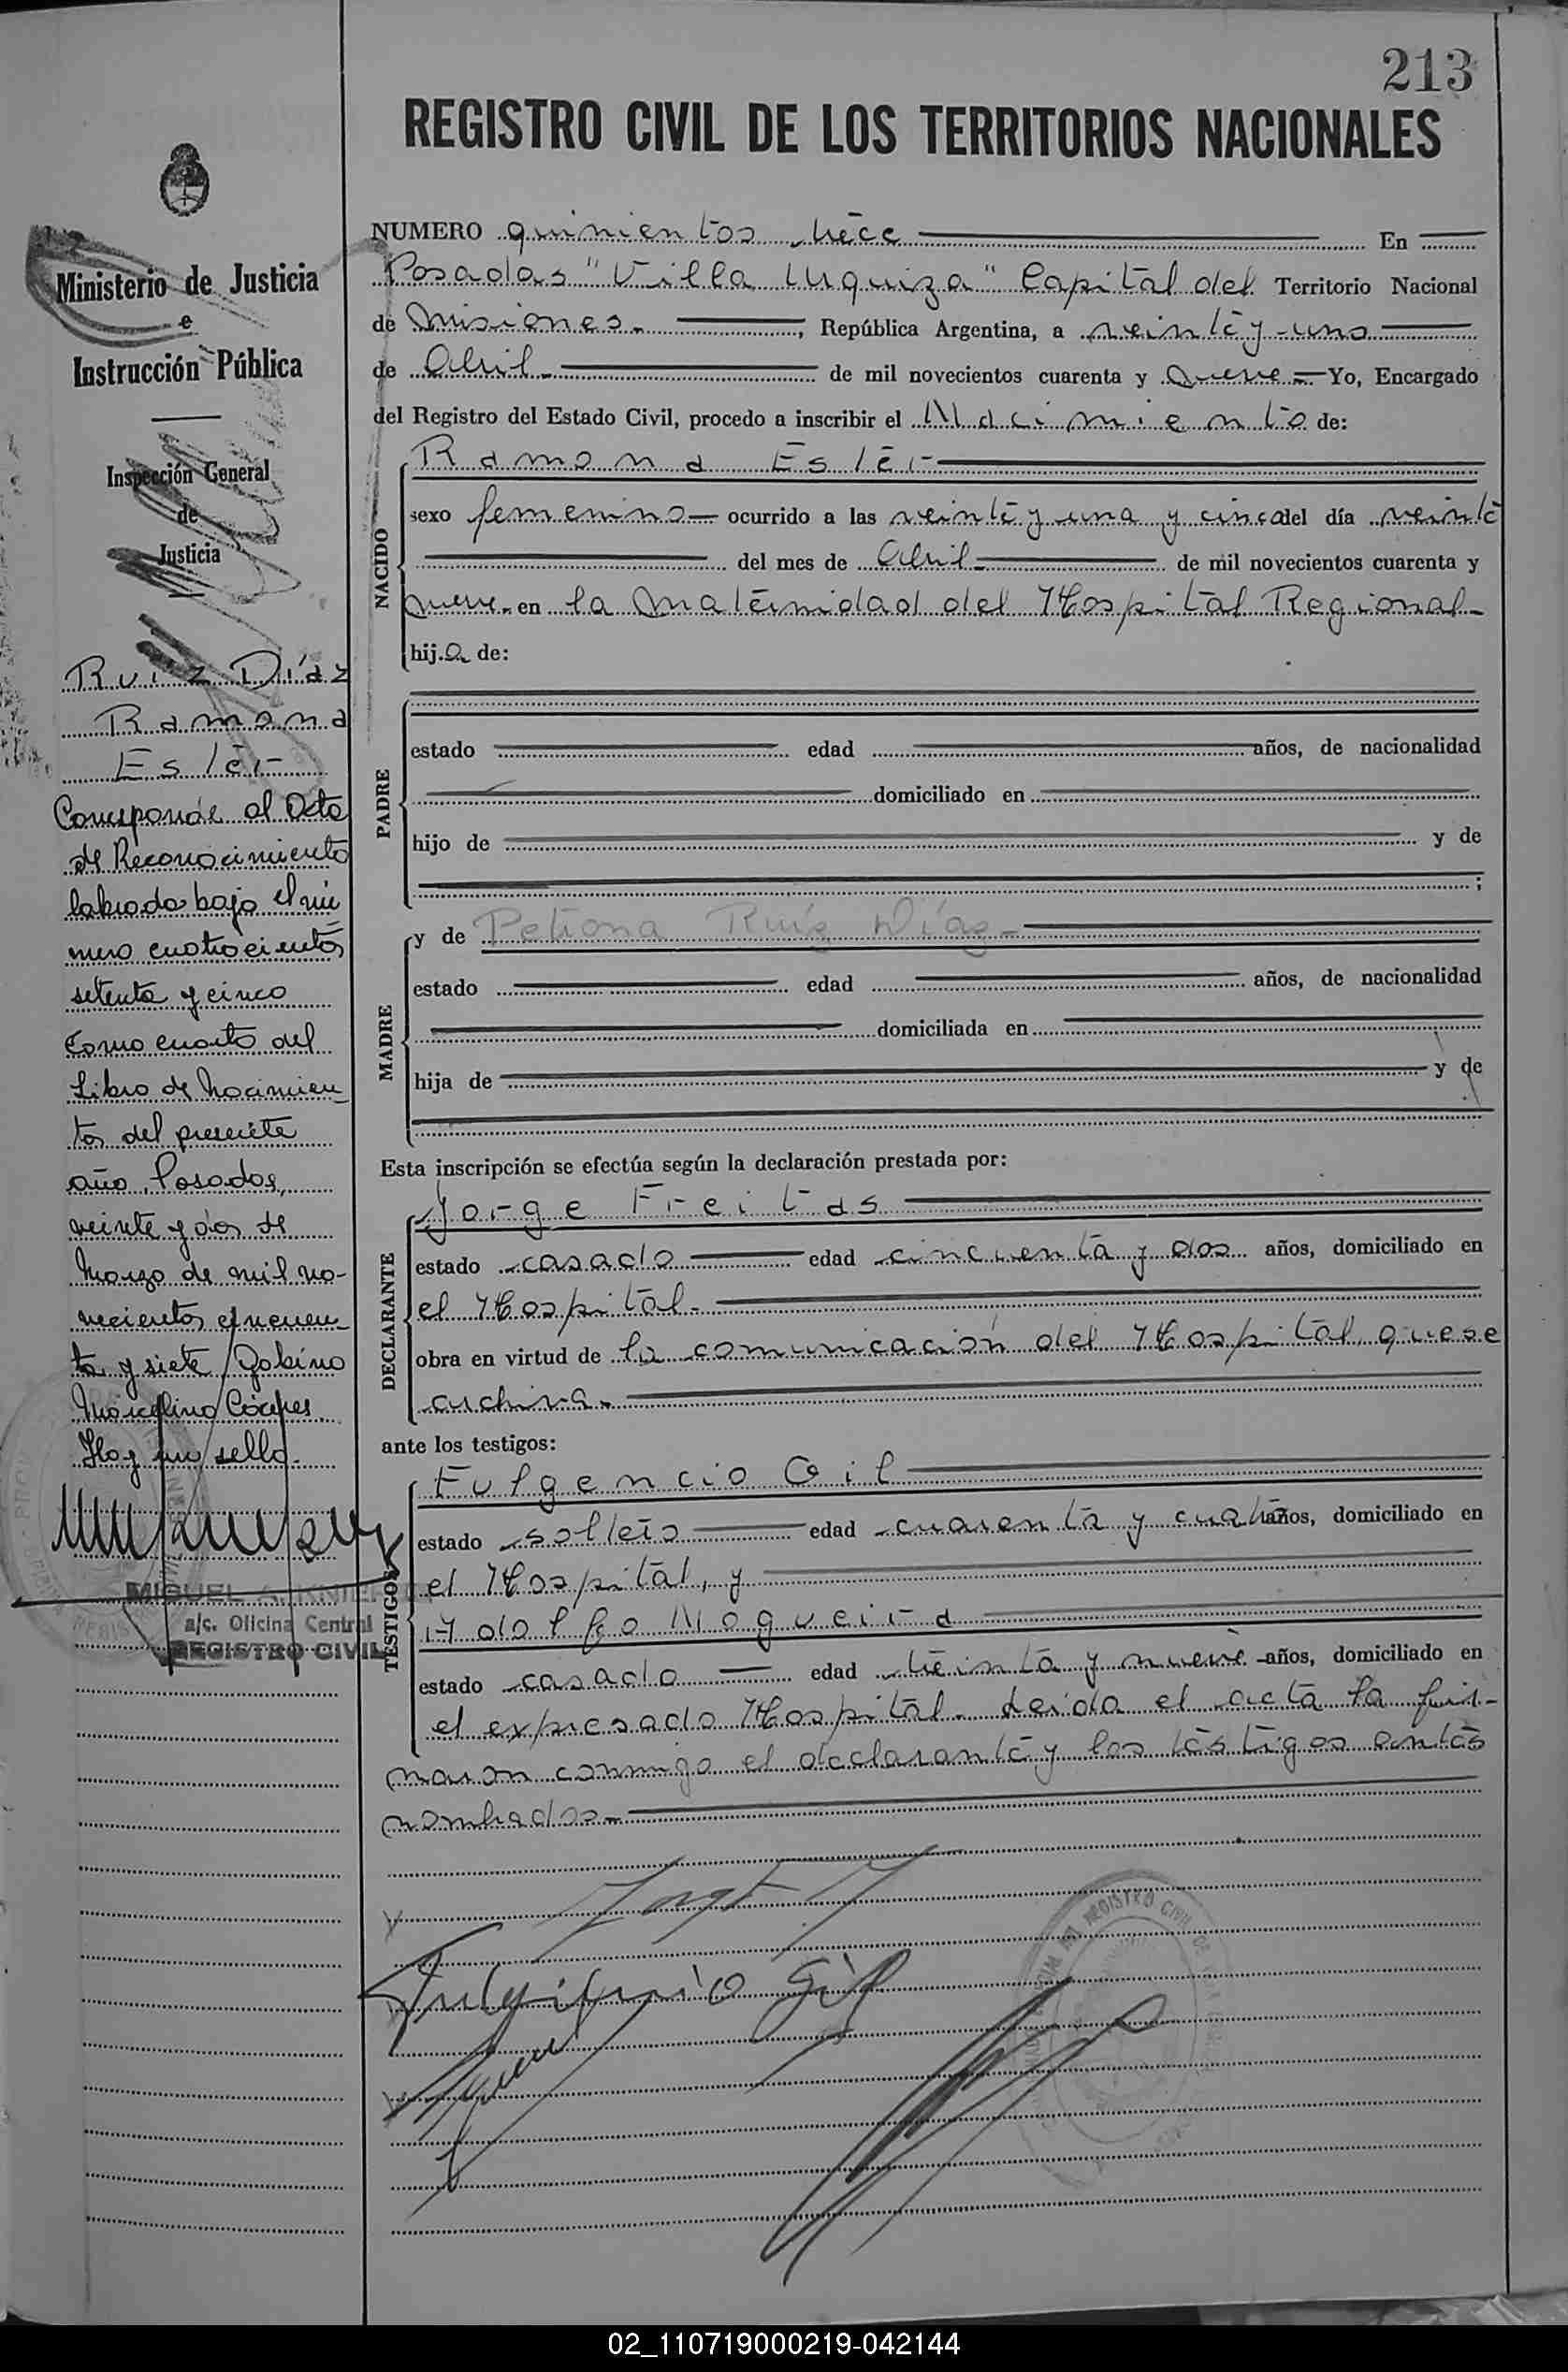 213
REGISTRO CIVIL DE LOS TERRITORIOS NACIONALES
Ministerio de Justicia
e
Instrucción Pública
Inspección General
de
Justicia
Ruíz Díaz
Ramona
Ester
Corresponde al Acta
de Reconocimiento
labrado bajo el nú
mero cuatrocientos
setenta y cinco
Tomo cuarto del
Libro de Nacimien_
tos del presente
año, Posadas,
veinte y dos de
Marzo de mil no-
vecientos cincuen_
ta y siete
Hay un sello.
a/c. Oficina Central
REGISTRO CIVIL
NUMERO quinientos trece En
Posadas "Villa Urquiza" Capital del Territorio Nacional
de Misiones. , República Argentina, a veinte y uno
de Abril de mil novecientos cuarenta y nueve Yo, Encargado
del Registro del Estado Civil, procedo a inscribir el Nacimiento de:
NACIDO
Ramona Ester
sexo femenino ocurrido a las veinte y una y cinco del día veinte
del mes de Abril de mil novecientos cuarenta y
nueve en la Maternidad del Hospital Regional
hija de:
PADRE
estado edad años, de nacionalidad
domiciliado en
hijo de y de
;
MADRE
y de Petrona Ruíz Díaz
estado edad años, de nacionalidad
domiciliada en
hija de y de
Esta inscripción se efectúa según la declaración prestada por:
DECLARANTE
Jorge Freitas
estado casado edad cincuenta y dos años, domiciliado en
el Hospital.
obra en virtud de la comunicación del Hospital que se
archiva.
ante los testigos:
TESTIGOS
Fulgencio Gil
estado soltero edad cuarenta y cuatro años, domiciliado en
el Hospital, y
Adolfo Nogueira
estado casado edad treinta y nueve años, domiciliado en
el expresado Hospital. Leida el acta la fir-
maron conmigo el declarante y los testigos antes
nombrados.
02_110719000219-042144